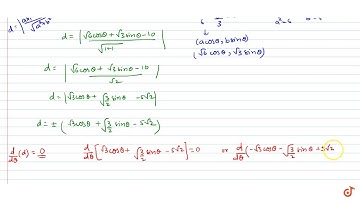 d = |
√a²+b²
6 3 a²=6
(acosθ, bsinθ)
(√6cosθ, √3sinθ)
d = | √6cosθ + √3sinθ - 10 / √1+1 |
d = | √6cosθ + √3sinθ - 10 / √2 |
d = | √3cosθ + √3/2 sinθ - 5√2 |
d = ± ( √3cosθ + √3/2 sinθ - 5√2 )
d/dθ (d) = 0 d/dθ [ √3cosθ + √3/2 sinθ - 5√2 ] = 0 or d/dθ ( -√3cosθ - √3/2 sinθ + 5√2